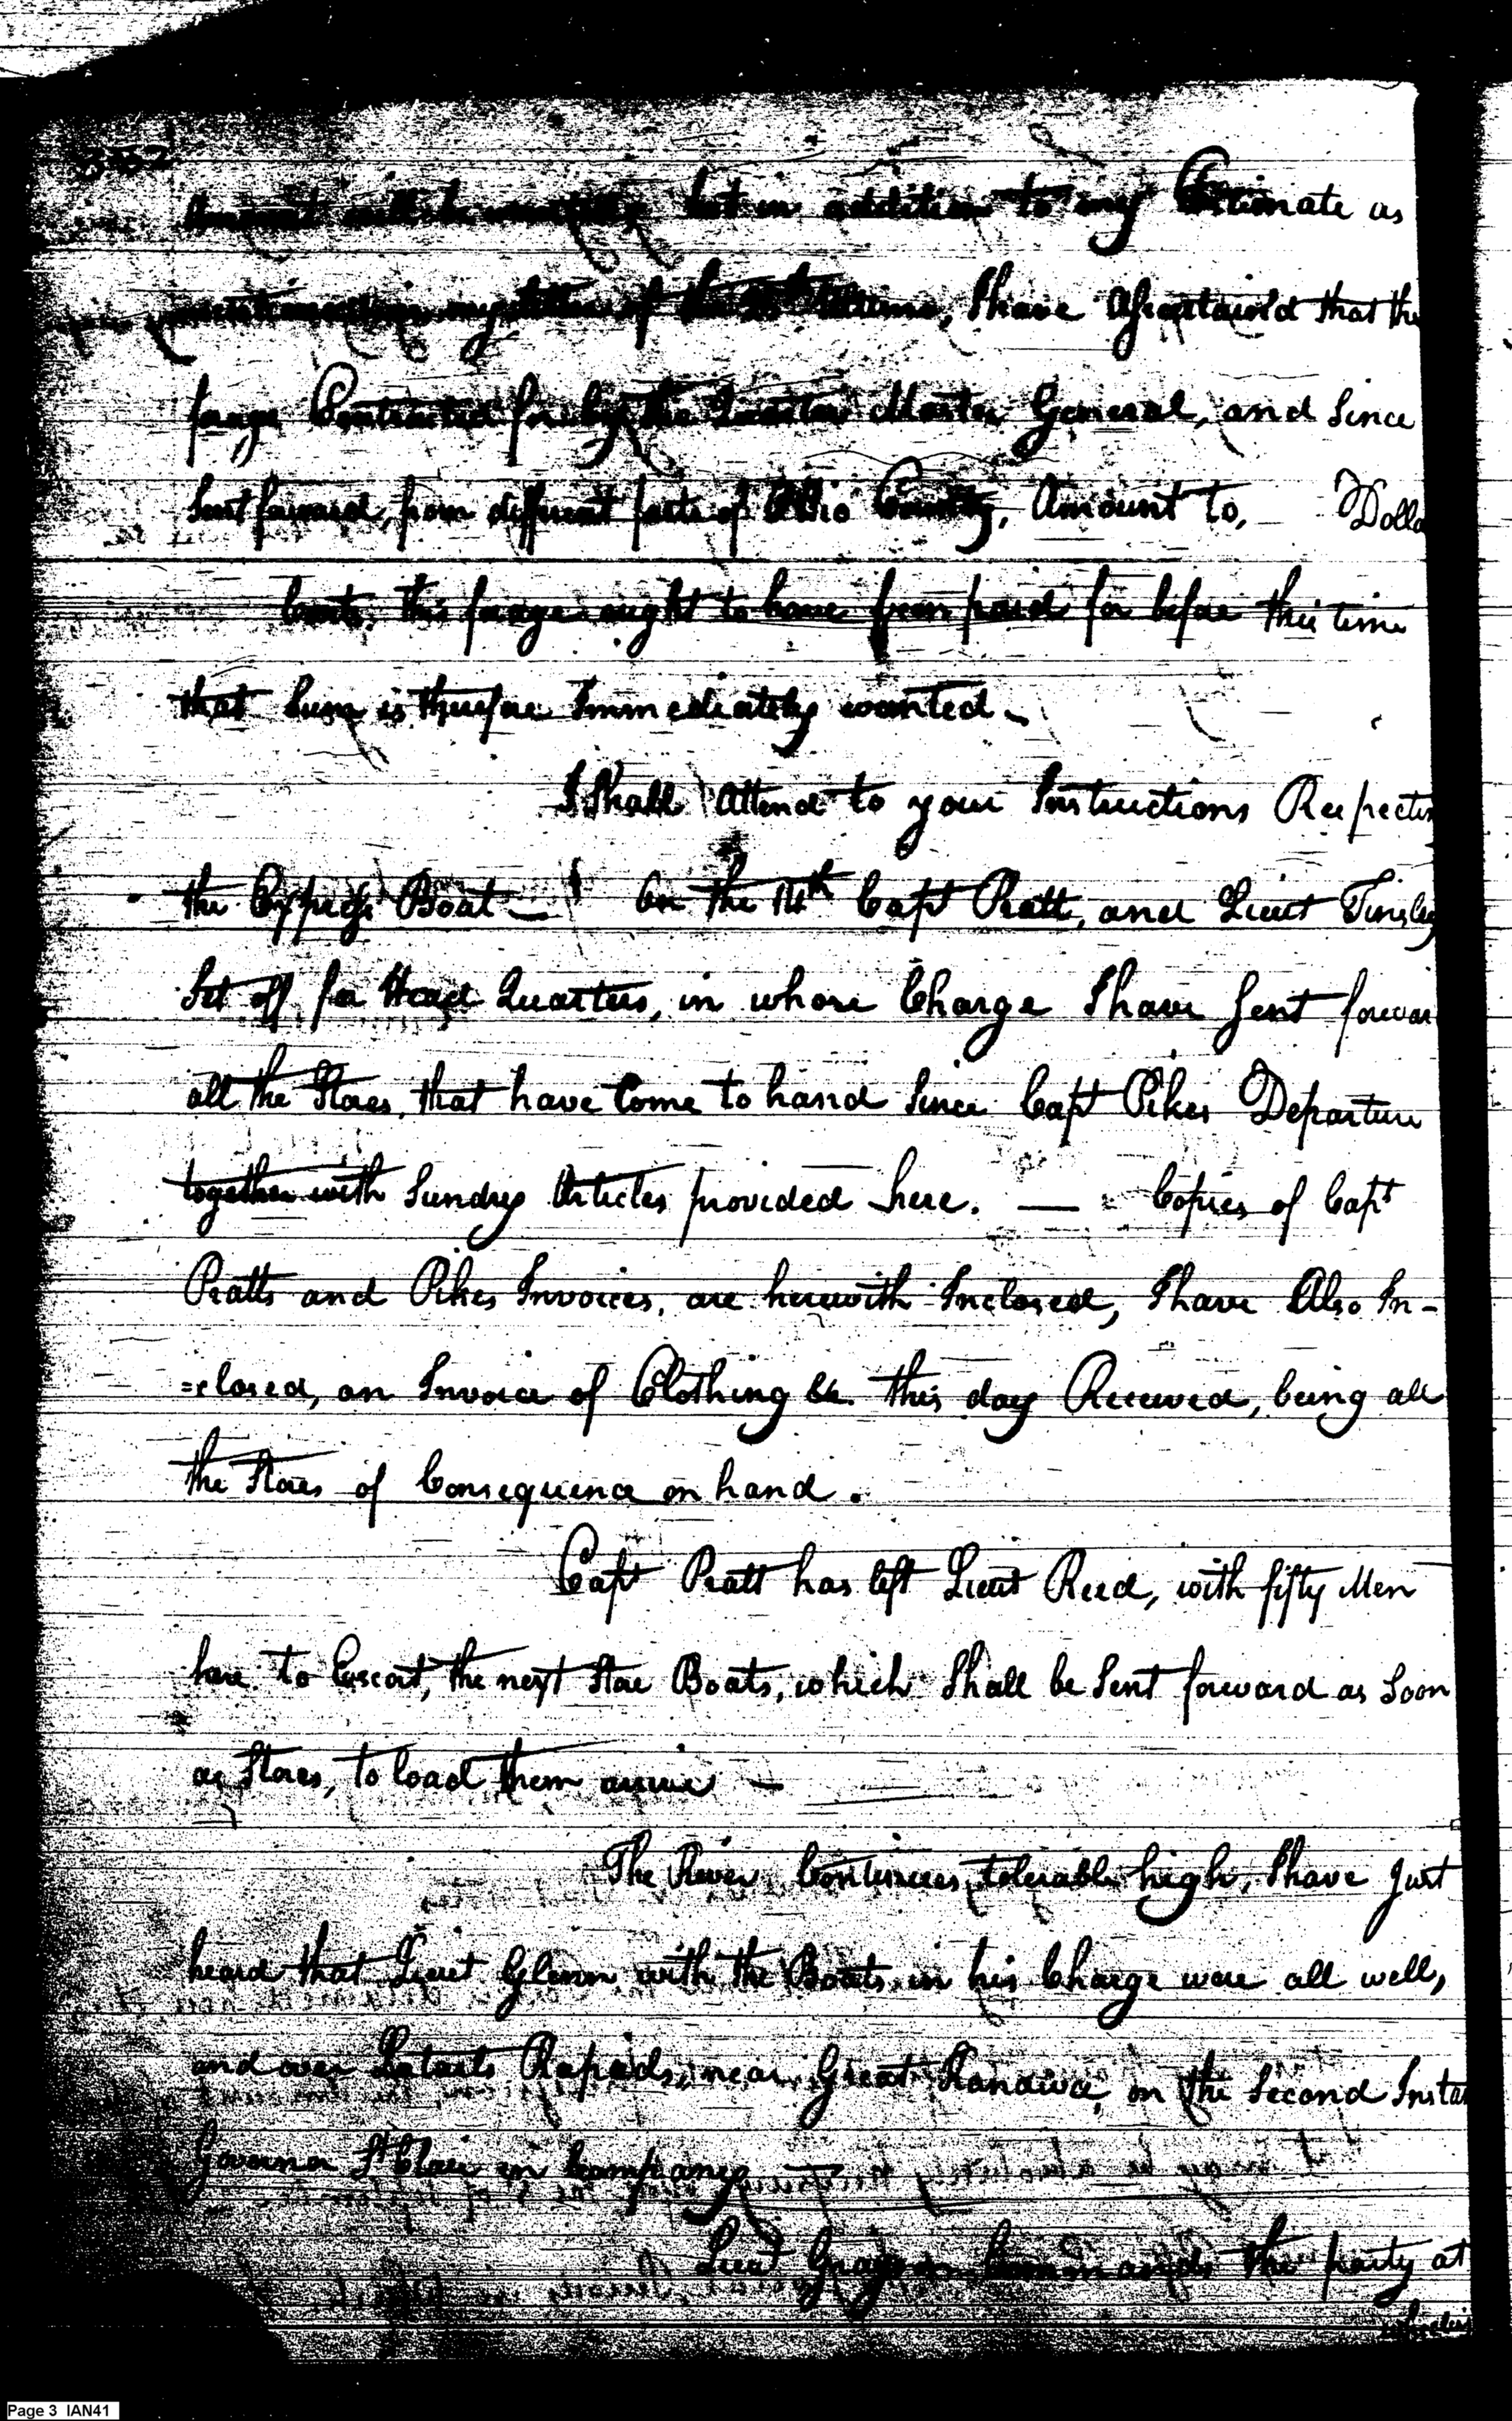 332
Amount will be but in addition to my Estimate as
mentioned in my letter of the I have Assertained that the
forage Contracted for by the Quarter Master General, and Since
Sent forward, from different parts of Ohio County, Amount to, Dolla
Cents. this forage ought to have been paid for before this time
that Sum is therefore Immediately wanted.
I Shall Attend to your Instructions Respectin
the Express Boat — On the 14th Capt Pratt, and Lieut Tinsley
Set off for Head Quarters, in whose Charge I have Sent forwar
all the Stores, that have Come to hand Since Capt Pikes Departure
together with Sundry Articles provided here. — Copies of Capt
Pratts and Pikes Invoices, are herewith Inclosed, I have Also In-
=closed, an Invoice of Clothing &c. this day Received, being all
the Stores of Consequence on hand.
Capt Pratt has left Lieut Reed, with fifty Men
here to Escort, the next Store Boats, which Shall be Sent forward as Soon
as Stores, to load them arrive —
The River Continues tolerable high, I have Just
heard that Lieut Glenn with the Boats in his Charge were all well,
and over Letarts Rapids, near Great Kanawa, on the Second Insta
Governor St Clair in Company —
Lieut Grayson Commands the party at
Wheelin
Page 3 IAN41